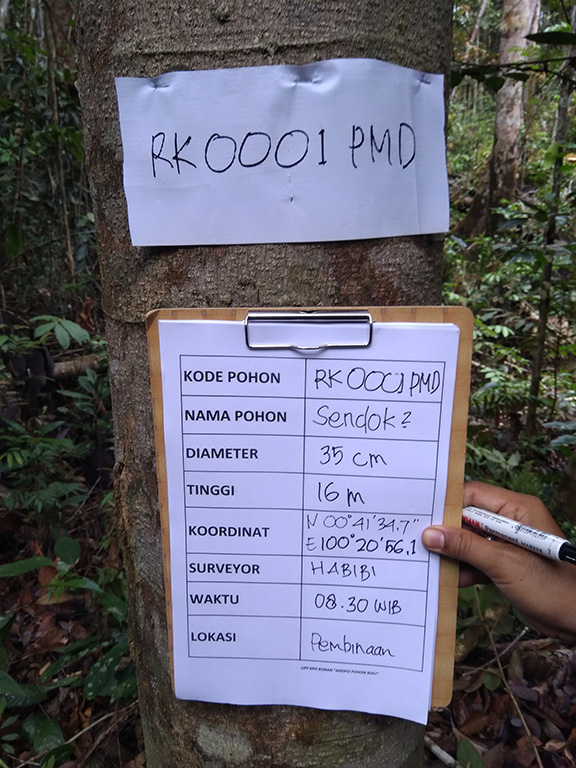 RK0001 PMD
KODE POHON RK0001 PMD
NAMA POHON Sendok2
DIAMETER 35 cm
TINGGI 16 m
KOORDINAT N 00°41'34.7"
E100°20'56.1
SURVEYOR HABIBI
WAKTU 08.30 WIB
LOKASI Pembinaan
UPT KPH ROKAN "ADOPSI POHON RIAU"